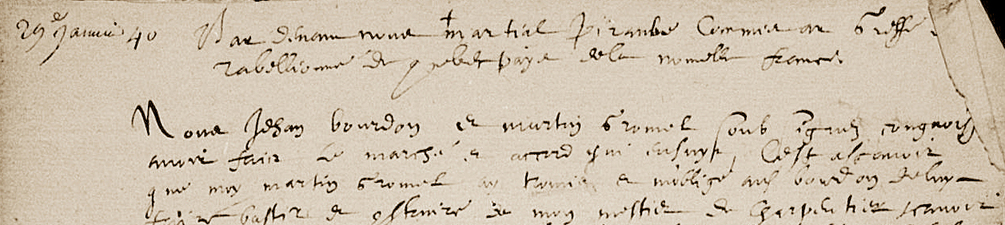 29e Janvier 40 Par devant nous martial Piraube Commis au Greffe
Tabellionné de quebec pays dela nouvelle france
Nous Jehan bourdon et martin Gromel soubsignez congnoiss
avoir fait Le marché et accord qui ensuyt, C'est ascavoir
que moy martin Gromel ay promis et m'oblige aud bourdon de luy
faire bastir et construire de mon mestier de Charpentier scavoir